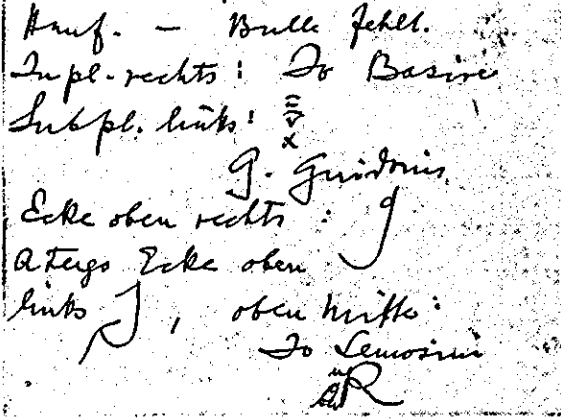 Hanf. – Bulle fehlt.
In pl. rechts: Jo Basire
Sub pl. links: x
G. Guidonis
Ecke oben rechts:
A tergo Ecke oben
links J, oben Mitte:
Jo Lemosini
R